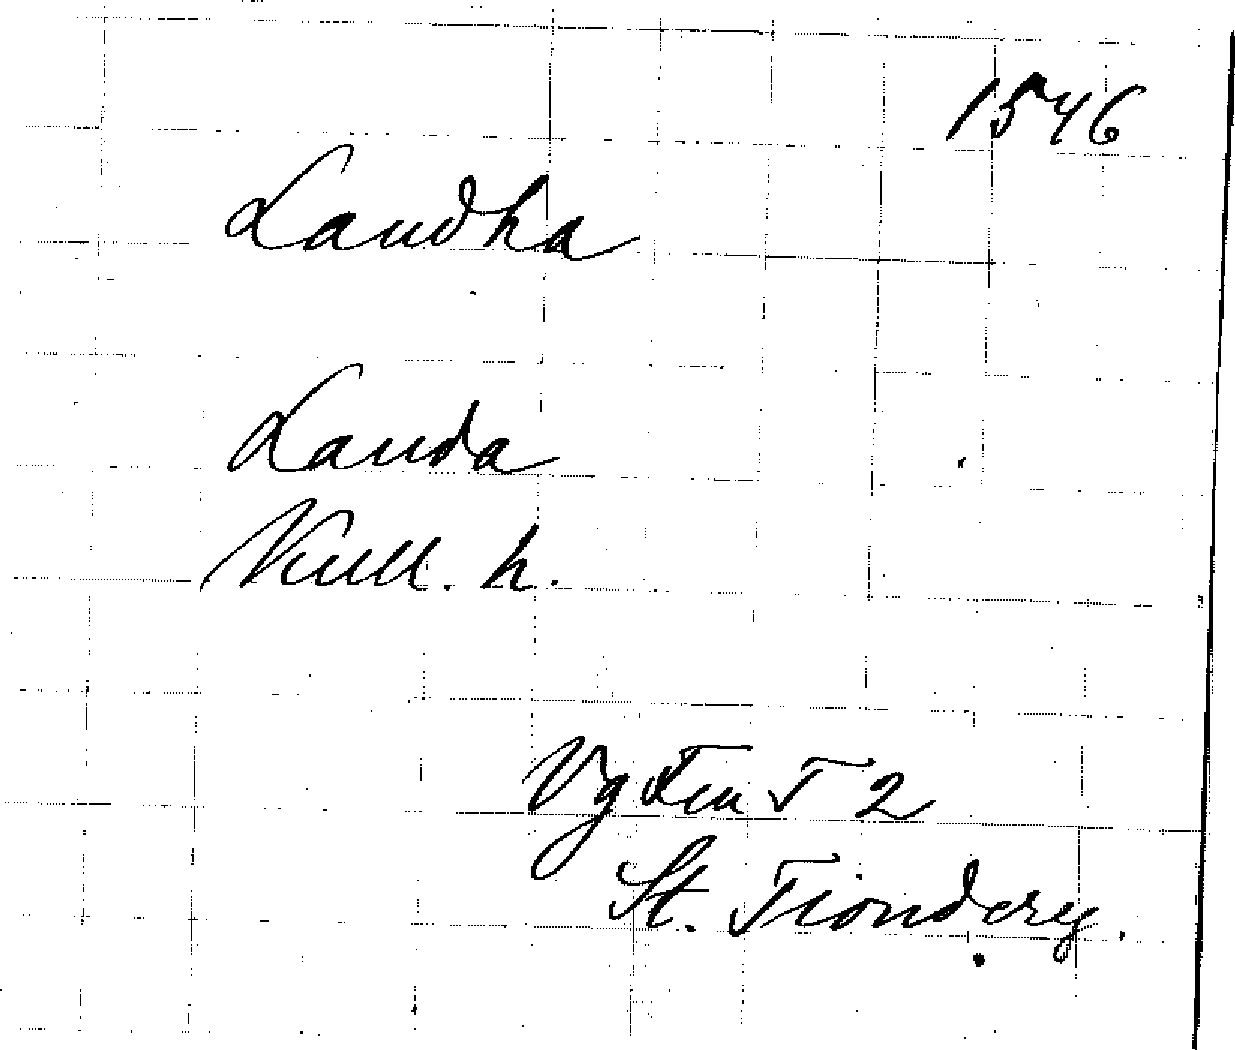 1546
Landha
Landa
Kull. h.
Vg T 2
St. Tiondery.